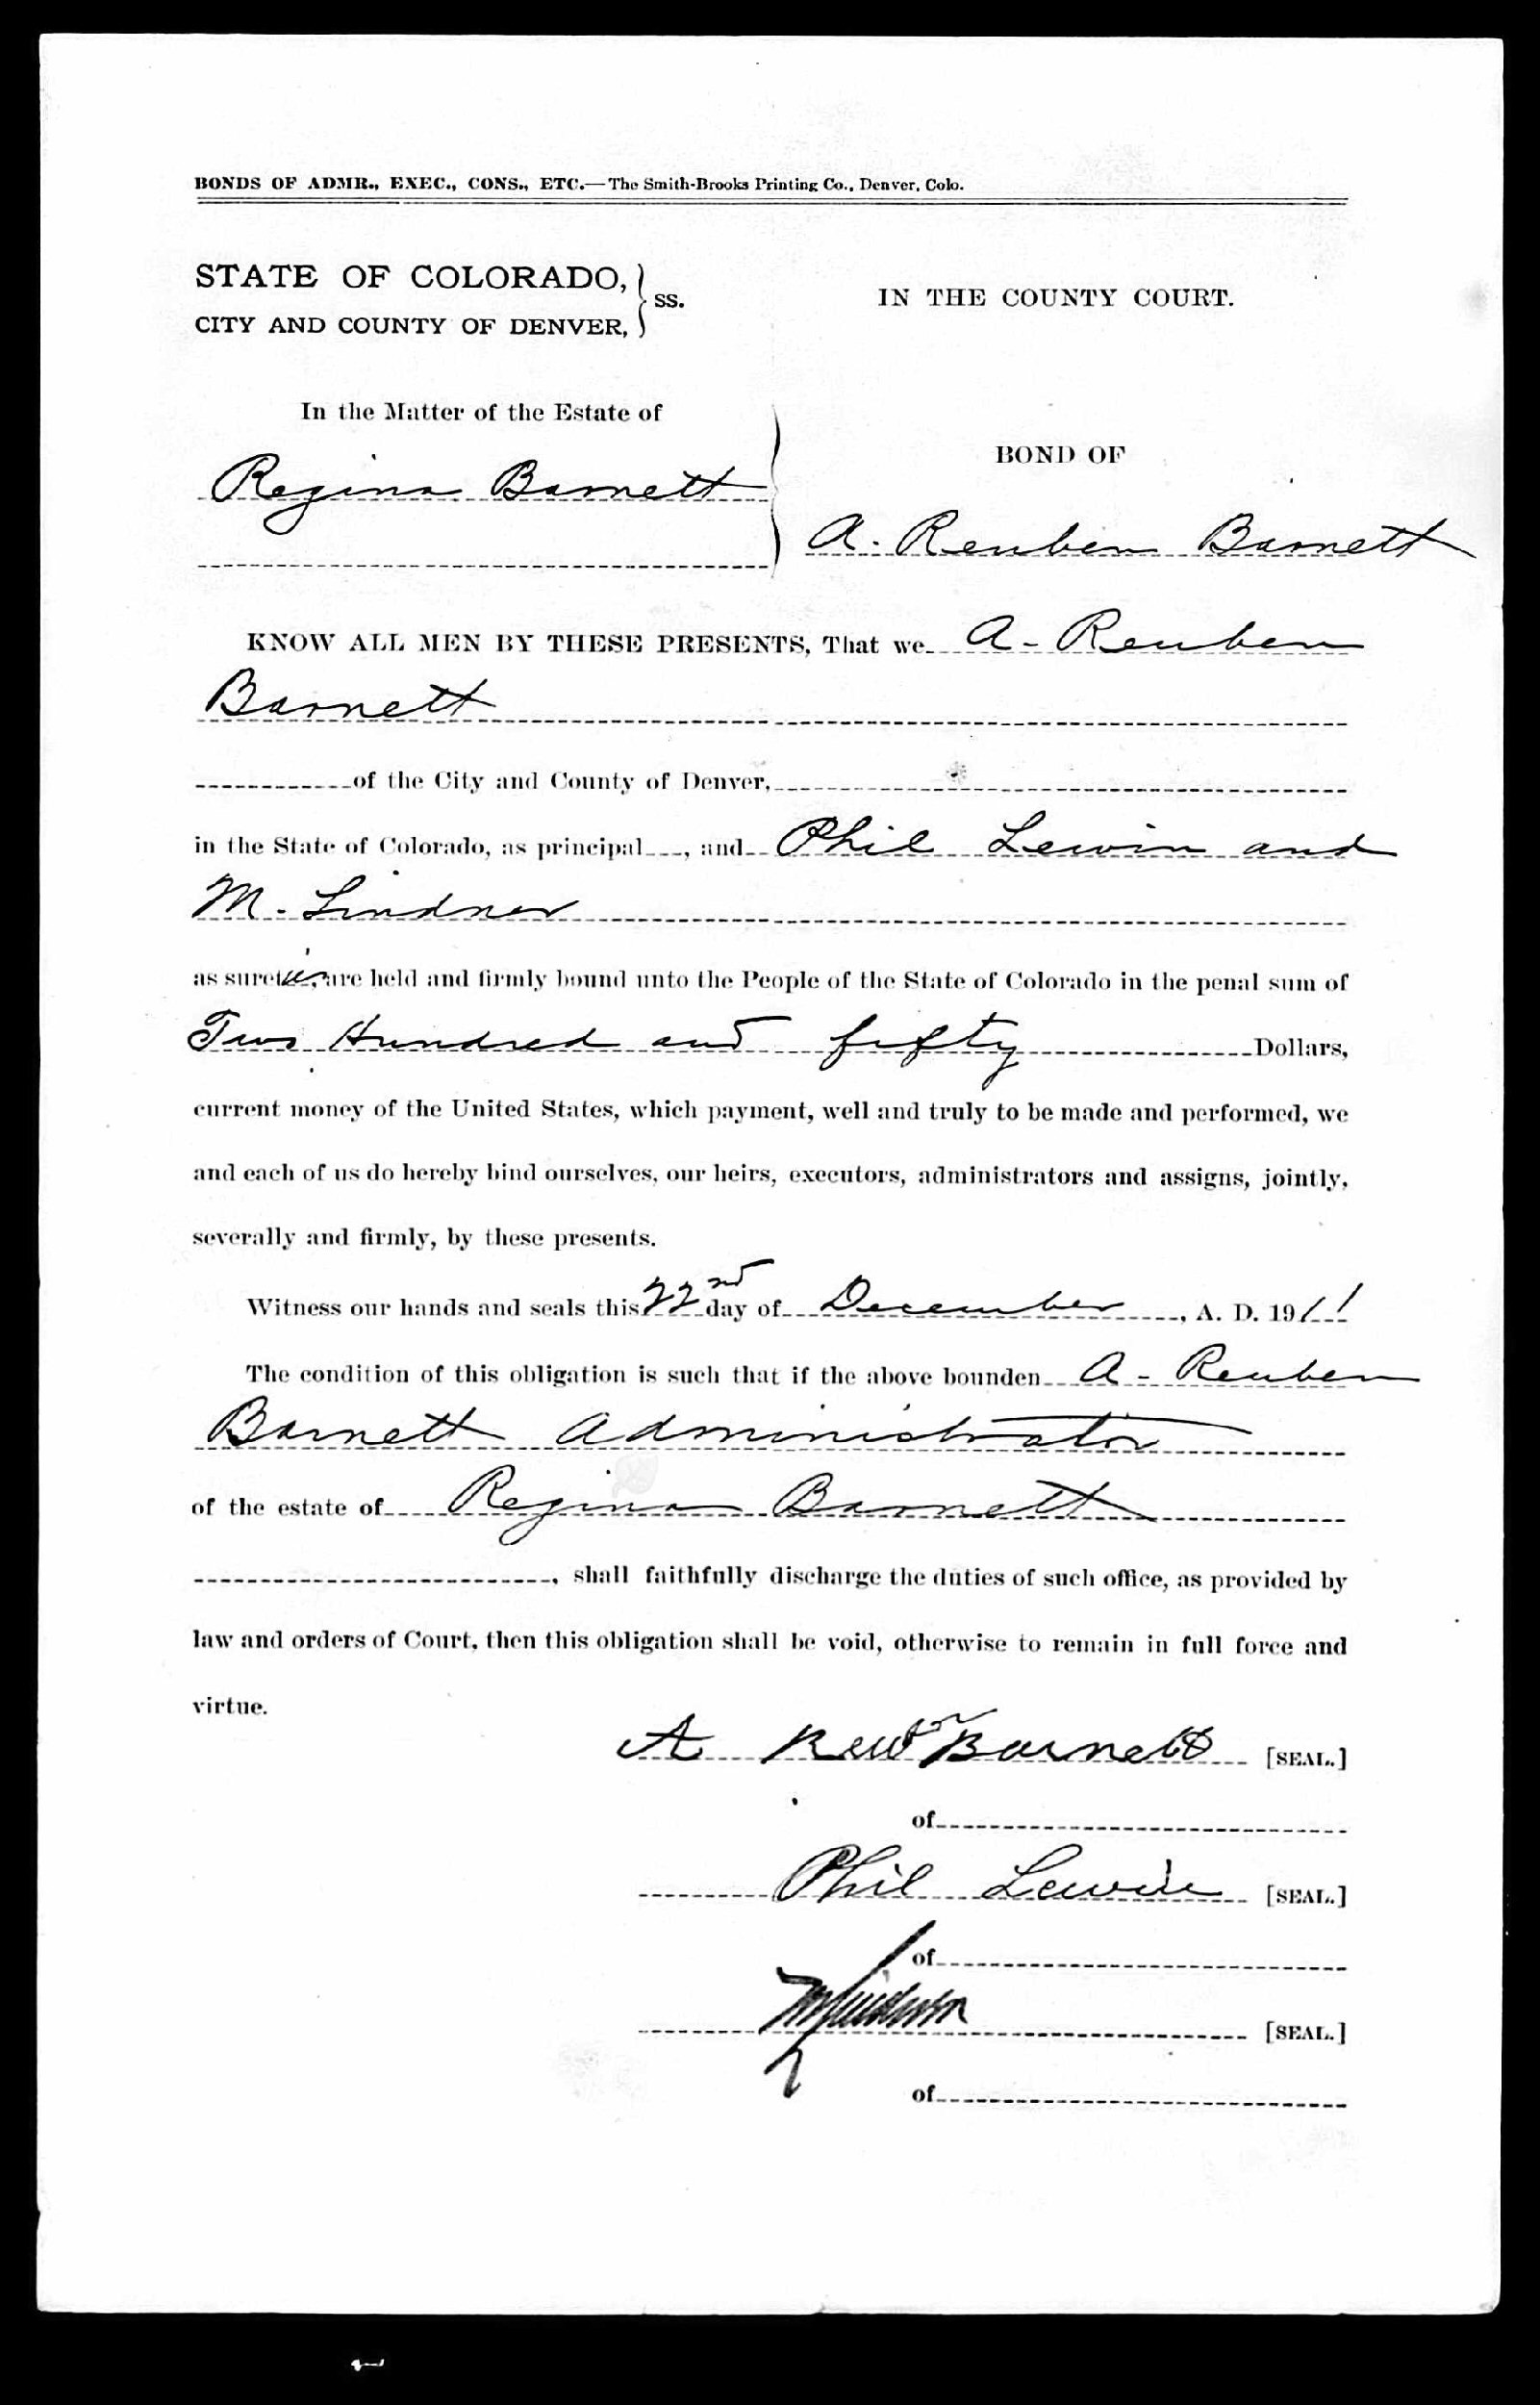 BONDS OF ADMR., EXEC., CONS., ETC.—The Smith-Brooks Printing Co., Denver, Colo.
STATE OF COLORADO,
CITY AND COUNTY OF DENVER, } SS.
IN THE COUNTY COURT.
In the Matter of the Estate of
Regina Barnett
BOND OF
A. Reuben Barnett
KNOW ALL MEN BY THESE PRESENTS, That we A - Reuben
Barnett
of the City and County of Denver,
in the State of Colorado, as principal , and Phil Lewin and
M. Lindner
as sureties, are held and firmly bound unto the People of the State of Colorado in the penal sum of
Two Hundred and fifty Dollars,
current money of the United States, which payment, well and truly to be made and performed, we
and each of us do hereby bind ourselves, our heirs, executors, administrators and assigns, jointly,
severally and firmly, by these presents.
Witness our hands and seals this 22nd day of December , A. D. 1911
The condition of this obligation is such that if the above bounden A - Reuben
Barnett Administrator
of the estate of Regina Barnett
, shall faithfully discharge the duties of such office, as provided by
law and orders of Court, then this obligation shall be void, otherwise to remain in full force and
virtue.
A Reubn Barnett [SEAL.]
of
Phil Lewin [SEAL.]
of
M Lindner [SEAL.]
of